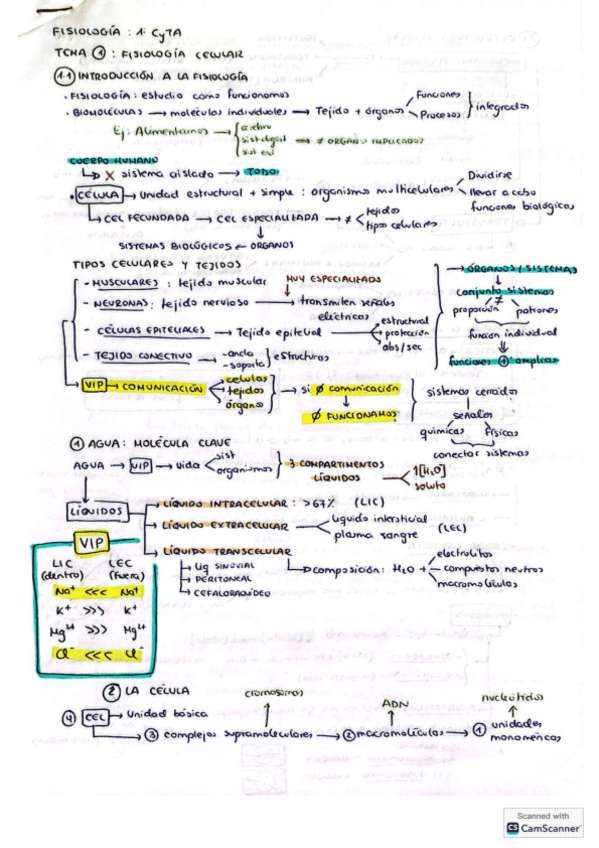 FISIOLOGÍA : 1º CyTA
TEMA ① : FISIOLOGÍA CELULAR
1.1 INTRODUCCIÓN A LA FISIOLOGÍA
· FISIOLOGÍA : estudio como funcionamos
· BIOMOLÉCULAS → moléculas individuales → Tejido + órganos Funciones Procesos } integrados
Ej : Alimentarnos → cerebro sist digest → ≠ ÓRGANO IMPLICADOS
CUERPO HUMANO
↳ X sistema aislado → TODO
· CÉLULA → Unidad estructural + simple : organismos multicelulares Dividirse llevar a cabo funciones biológicas
↳ CEL FECUNDADA → CEL ESPECIALIZADA → ≠ tejidos tipos celulares
SISTEMAS BIOLÓGICOS ← ORGANOS
TIPOS CELULARES Y TEJIDOS
- MUSCULARES : tejido muscular
MUY ESPECIALIZADO
- NEURONAS : tejido nervioso → transmiten señales eléctricas
- CÉLULAS EPITELIALES → Tejido epitelial estructural protección abs/sec
- TEJIDO CONECTIVO -ancla -soporta } estructuras
→ ÓRGANOS / SISTEMAS
conjunto sistemas
≠
proporción patrones
función individual
funciones + amplias
VIP → COMUNICACIÓN células tejidos órgano → si Ø comunicación
Ø FUNCIONAMOS
sistemas cerrados
señales
químicas físicas
conectar sistemas
① AGUA : MOLÉCULA CLAVE
AGUA → VIP → vida sist organismos } 3 COMPARTIMENTOS LÍQUIDOS ↑[H₂O] soluto
LÍQUIDOS
LÍQUIDO INTRACELULAR : >67% (LIC)
LÍQUIDO EXTRACELULAR líquido intersticial plasma sangre (LEC)
LÍQUIDO TRANSCELULAR
→ Líq SINOVIAL
→ PERITONEAL
→ CEFALORAQUÍDEO
↳ Composición : H₂O + electrolitos compuestos neutros macromoléculas
VIP
LIC LEC
(dentro) (fuera)
Na⁺ <<< Na⁺
K⁺ >>> K⁺
Mg²⁺ >>> Mg²⁺
Cl⁻ <<< Cl⁻
② LA CÉLULA
cromosomas ADN nucleótidos
④ CEL → Unidad básica
③ complejos supramoleculares → ② macromoléculas → ① unidades monoméricas
Scanned with
CS CamScanner